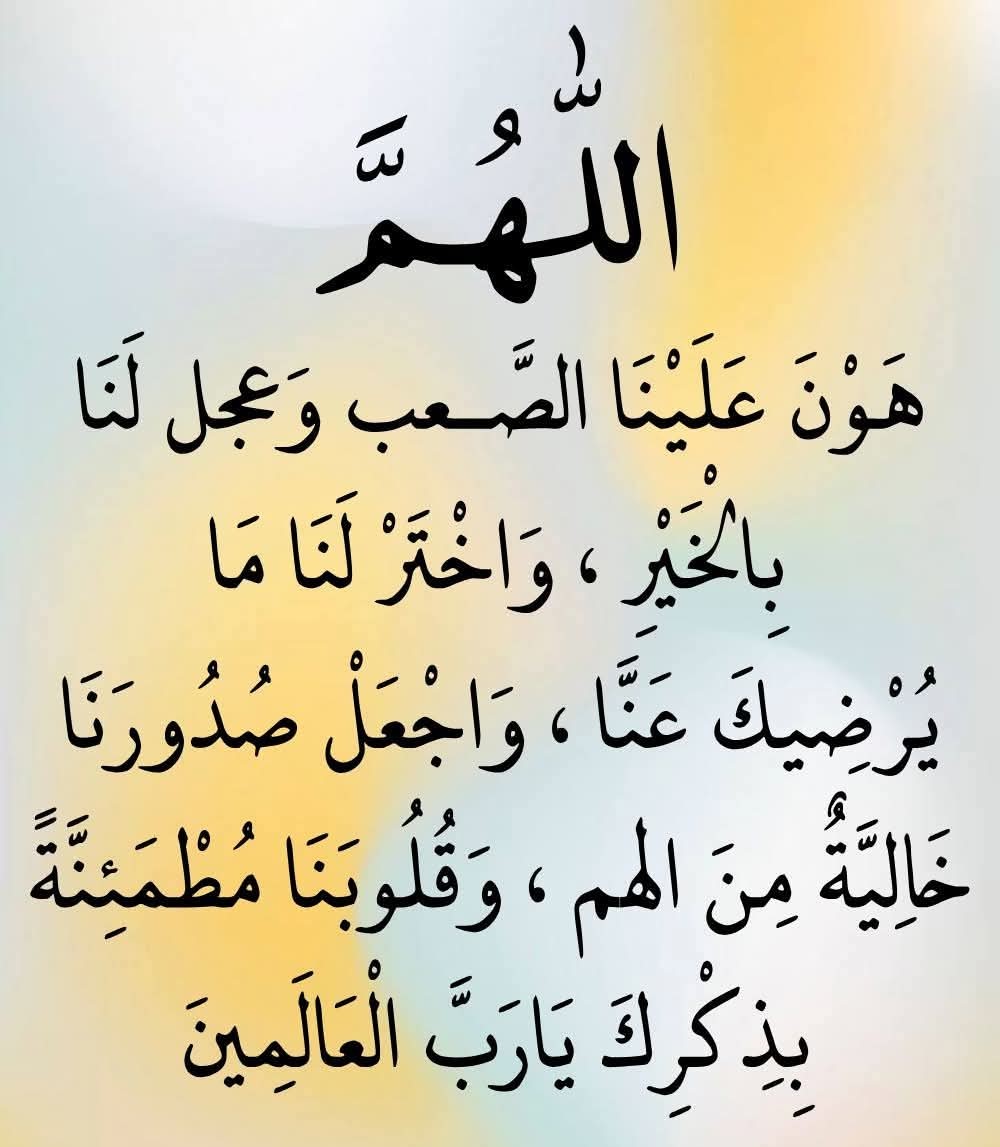 اللّٰهُمَّ
هَوْنَ عَلَيْنَا الصَّعب وَعجل لَنَا
بِالْخَيْرِ ، وَاخْتَرْ لَنَا مَا
يُرْضِيكَ عَنَّا ، وَاجْعَلْ صُدُورَنَا
خَالِيَّةٌ مِنَ الهم ، وَقُلُوبَنَا مُطْمَئِنَّةً
بِذِكْرِكَ يَارَبَّ الْعَالَمِينَ